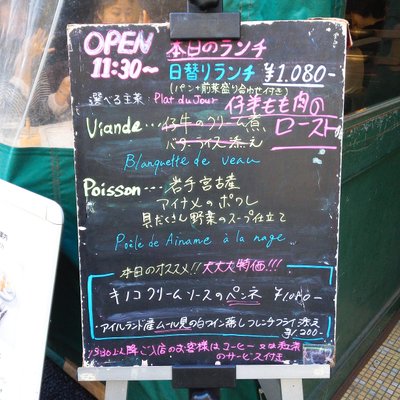 OPEN 本日のランチ
11:30～ 日替りランチ ¥1.080-
(パン+前菜盛り合わせ付き)
選べる主菜：Plat du Jour 仔羊もも肉の
ロースト
Viande･･･仔牛のクリーム煮
バターライス添え
Blanquette de veau
Poisson･･･岩手宮古産
アイナメのポワレ
具だくさん野菜のスープ仕立て
Poêle de Ainame à la nage
本日のオススメ!! 大大大特価!!!
キノコクリームソースのペンネ ¥1080-
アイルランド産ムール貝の白ワイン蒸しフレンチフライ添え
¥1.200-
13:30以降ご入店のお客様はコーヒー又は紅茶
のサービス付き